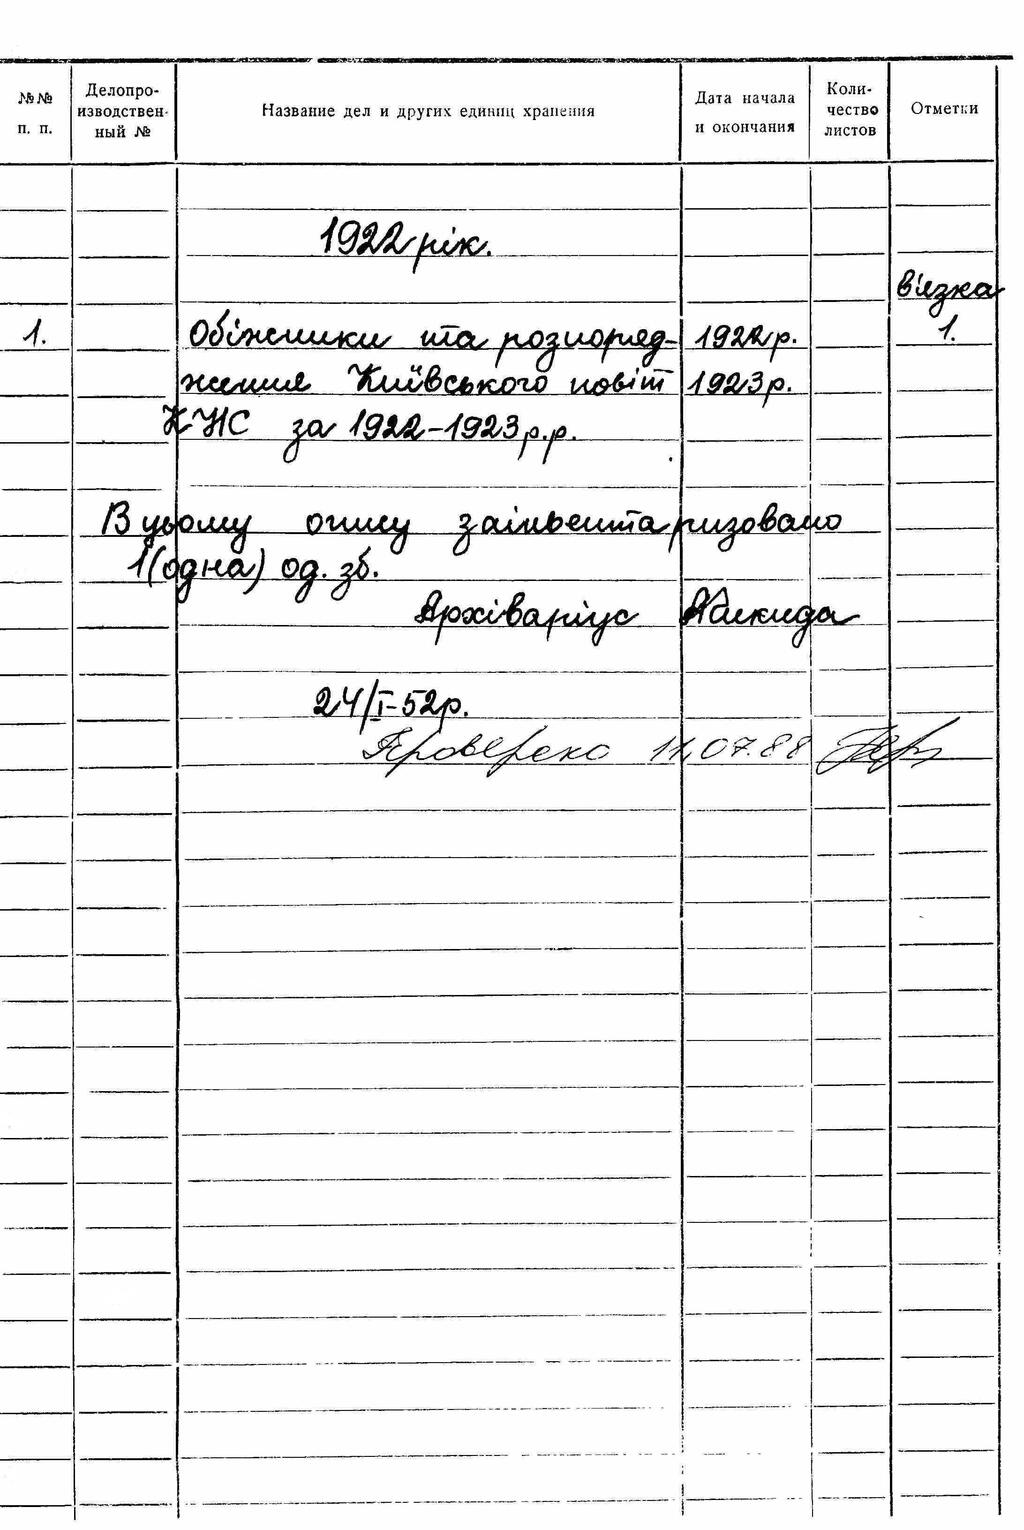 №№ п. п. Делопро- изводствен- ный № Название дел и других единиц хранения Дата начала и окончания Коли- чество листов Отметки
1922 рік.
в'язка
1. Обіжники та розпоряд- 1922 р. 1.
ження Київського повіт 1923 р.
КНС за 1922-1923 р.р.
В цьому опису заінвентаризовано
1 (одна) од. зб.
Архіваріус
24/I-52р.
Проверено 11.07.88